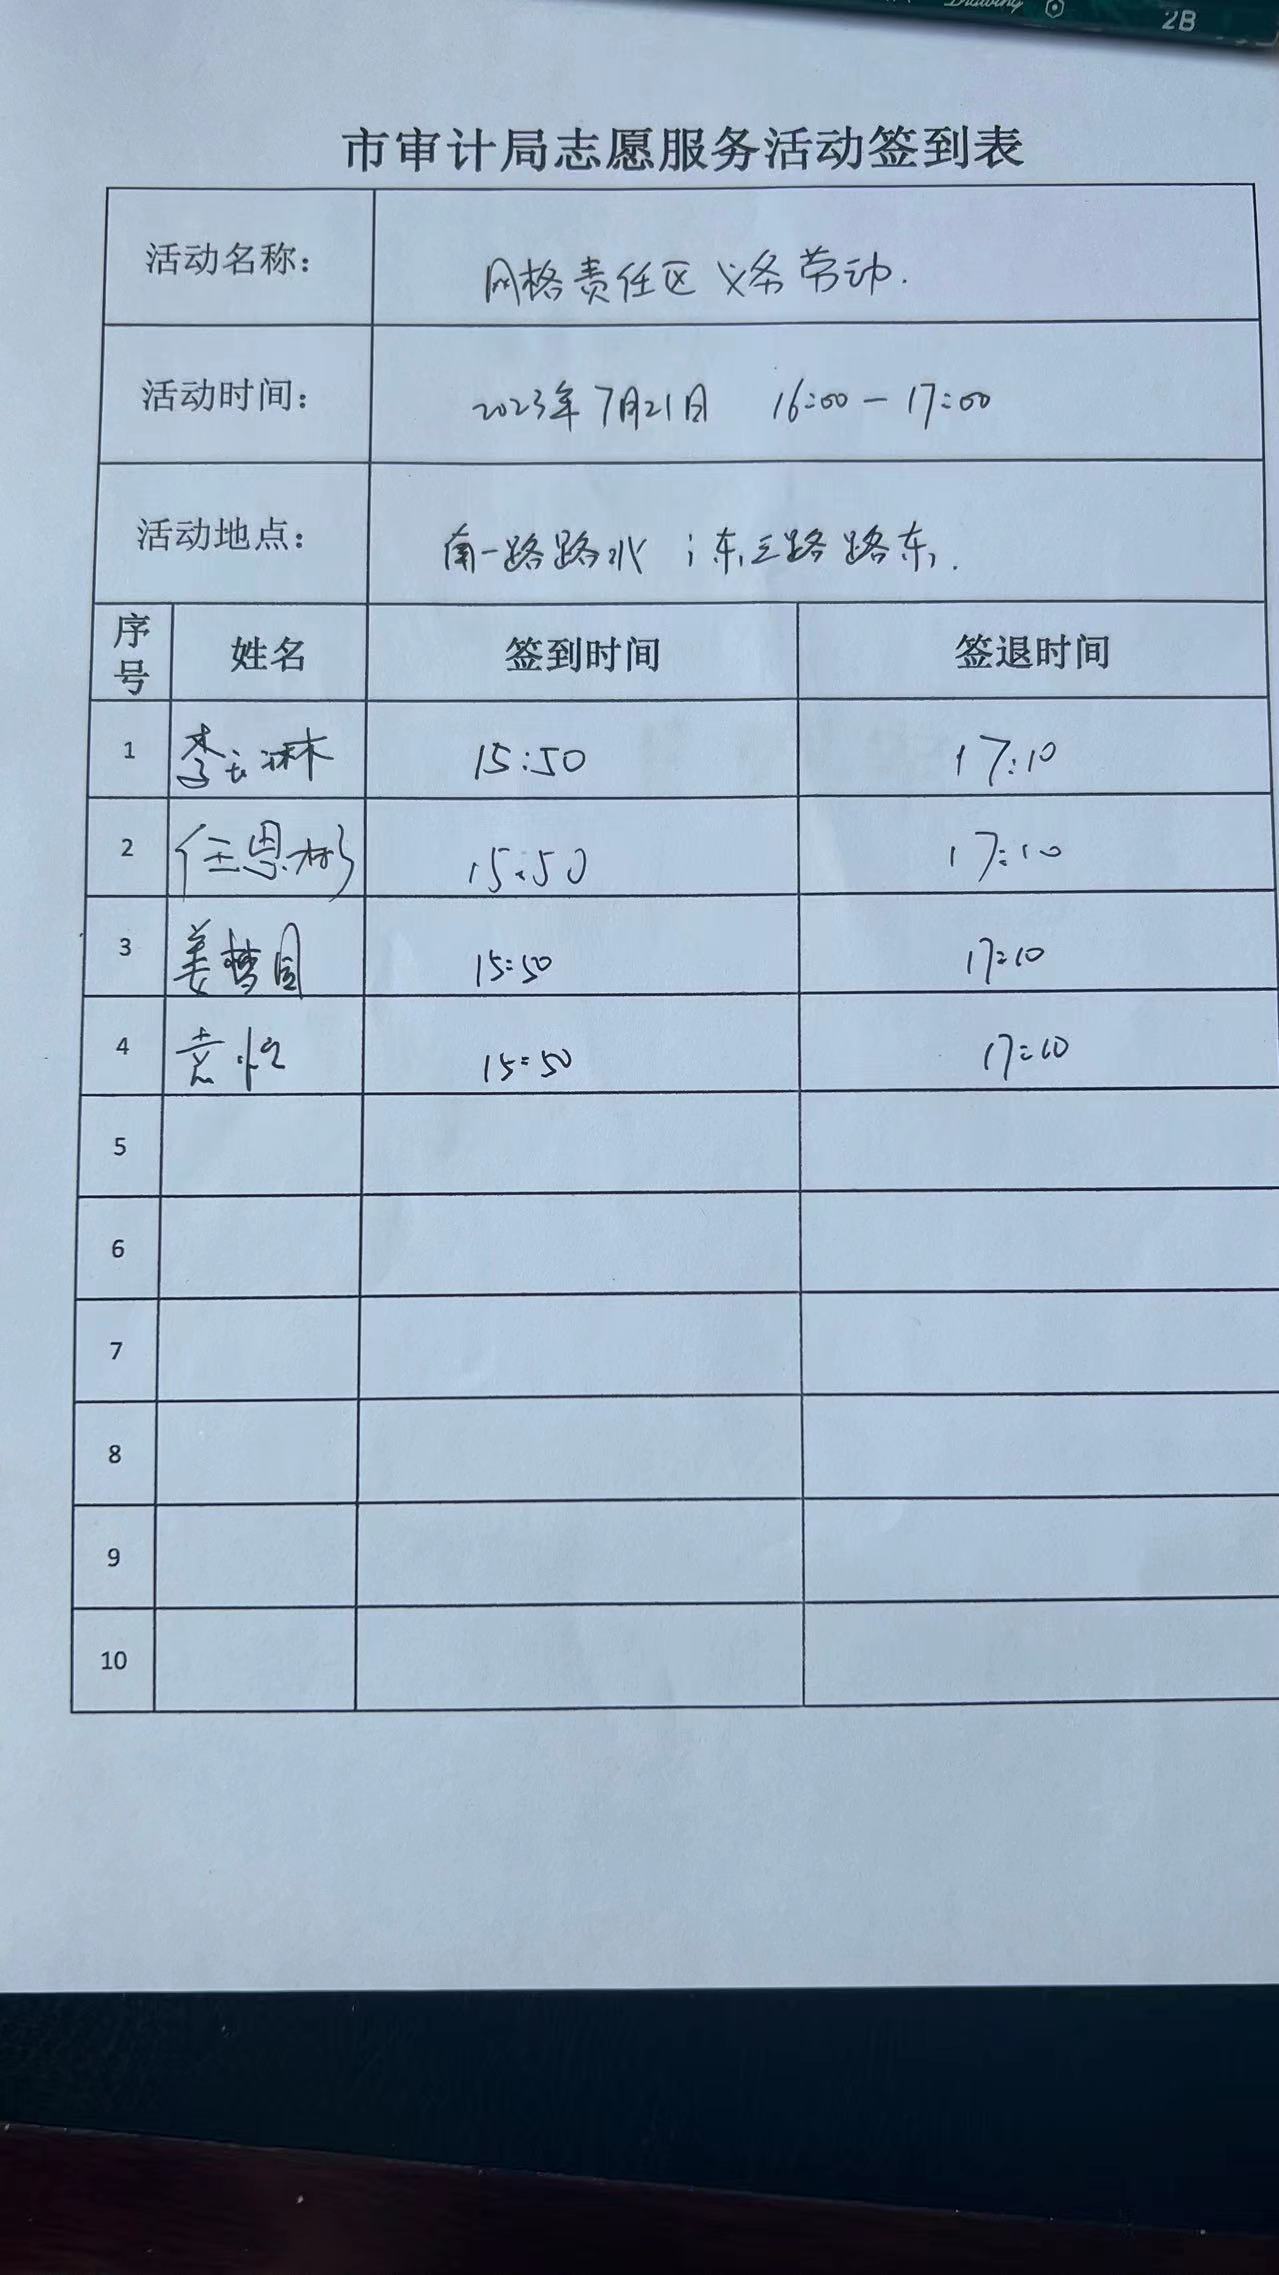 Drawing 2B
市审计局志愿服务活动签到表
活动名称: 网格责任区义务劳动.
活动时间: 2023年7月21日 16:00-17:00
活动地点: 南一路路北;东三路路东.
序号 姓名 签到时间 签退时间
1 李 15:50 17:10
2 任恩彬 15:50 17:10
3 姜梦圆 15:50 17:10
4 袁 15:50 17:10
5
6
7
8
9
10